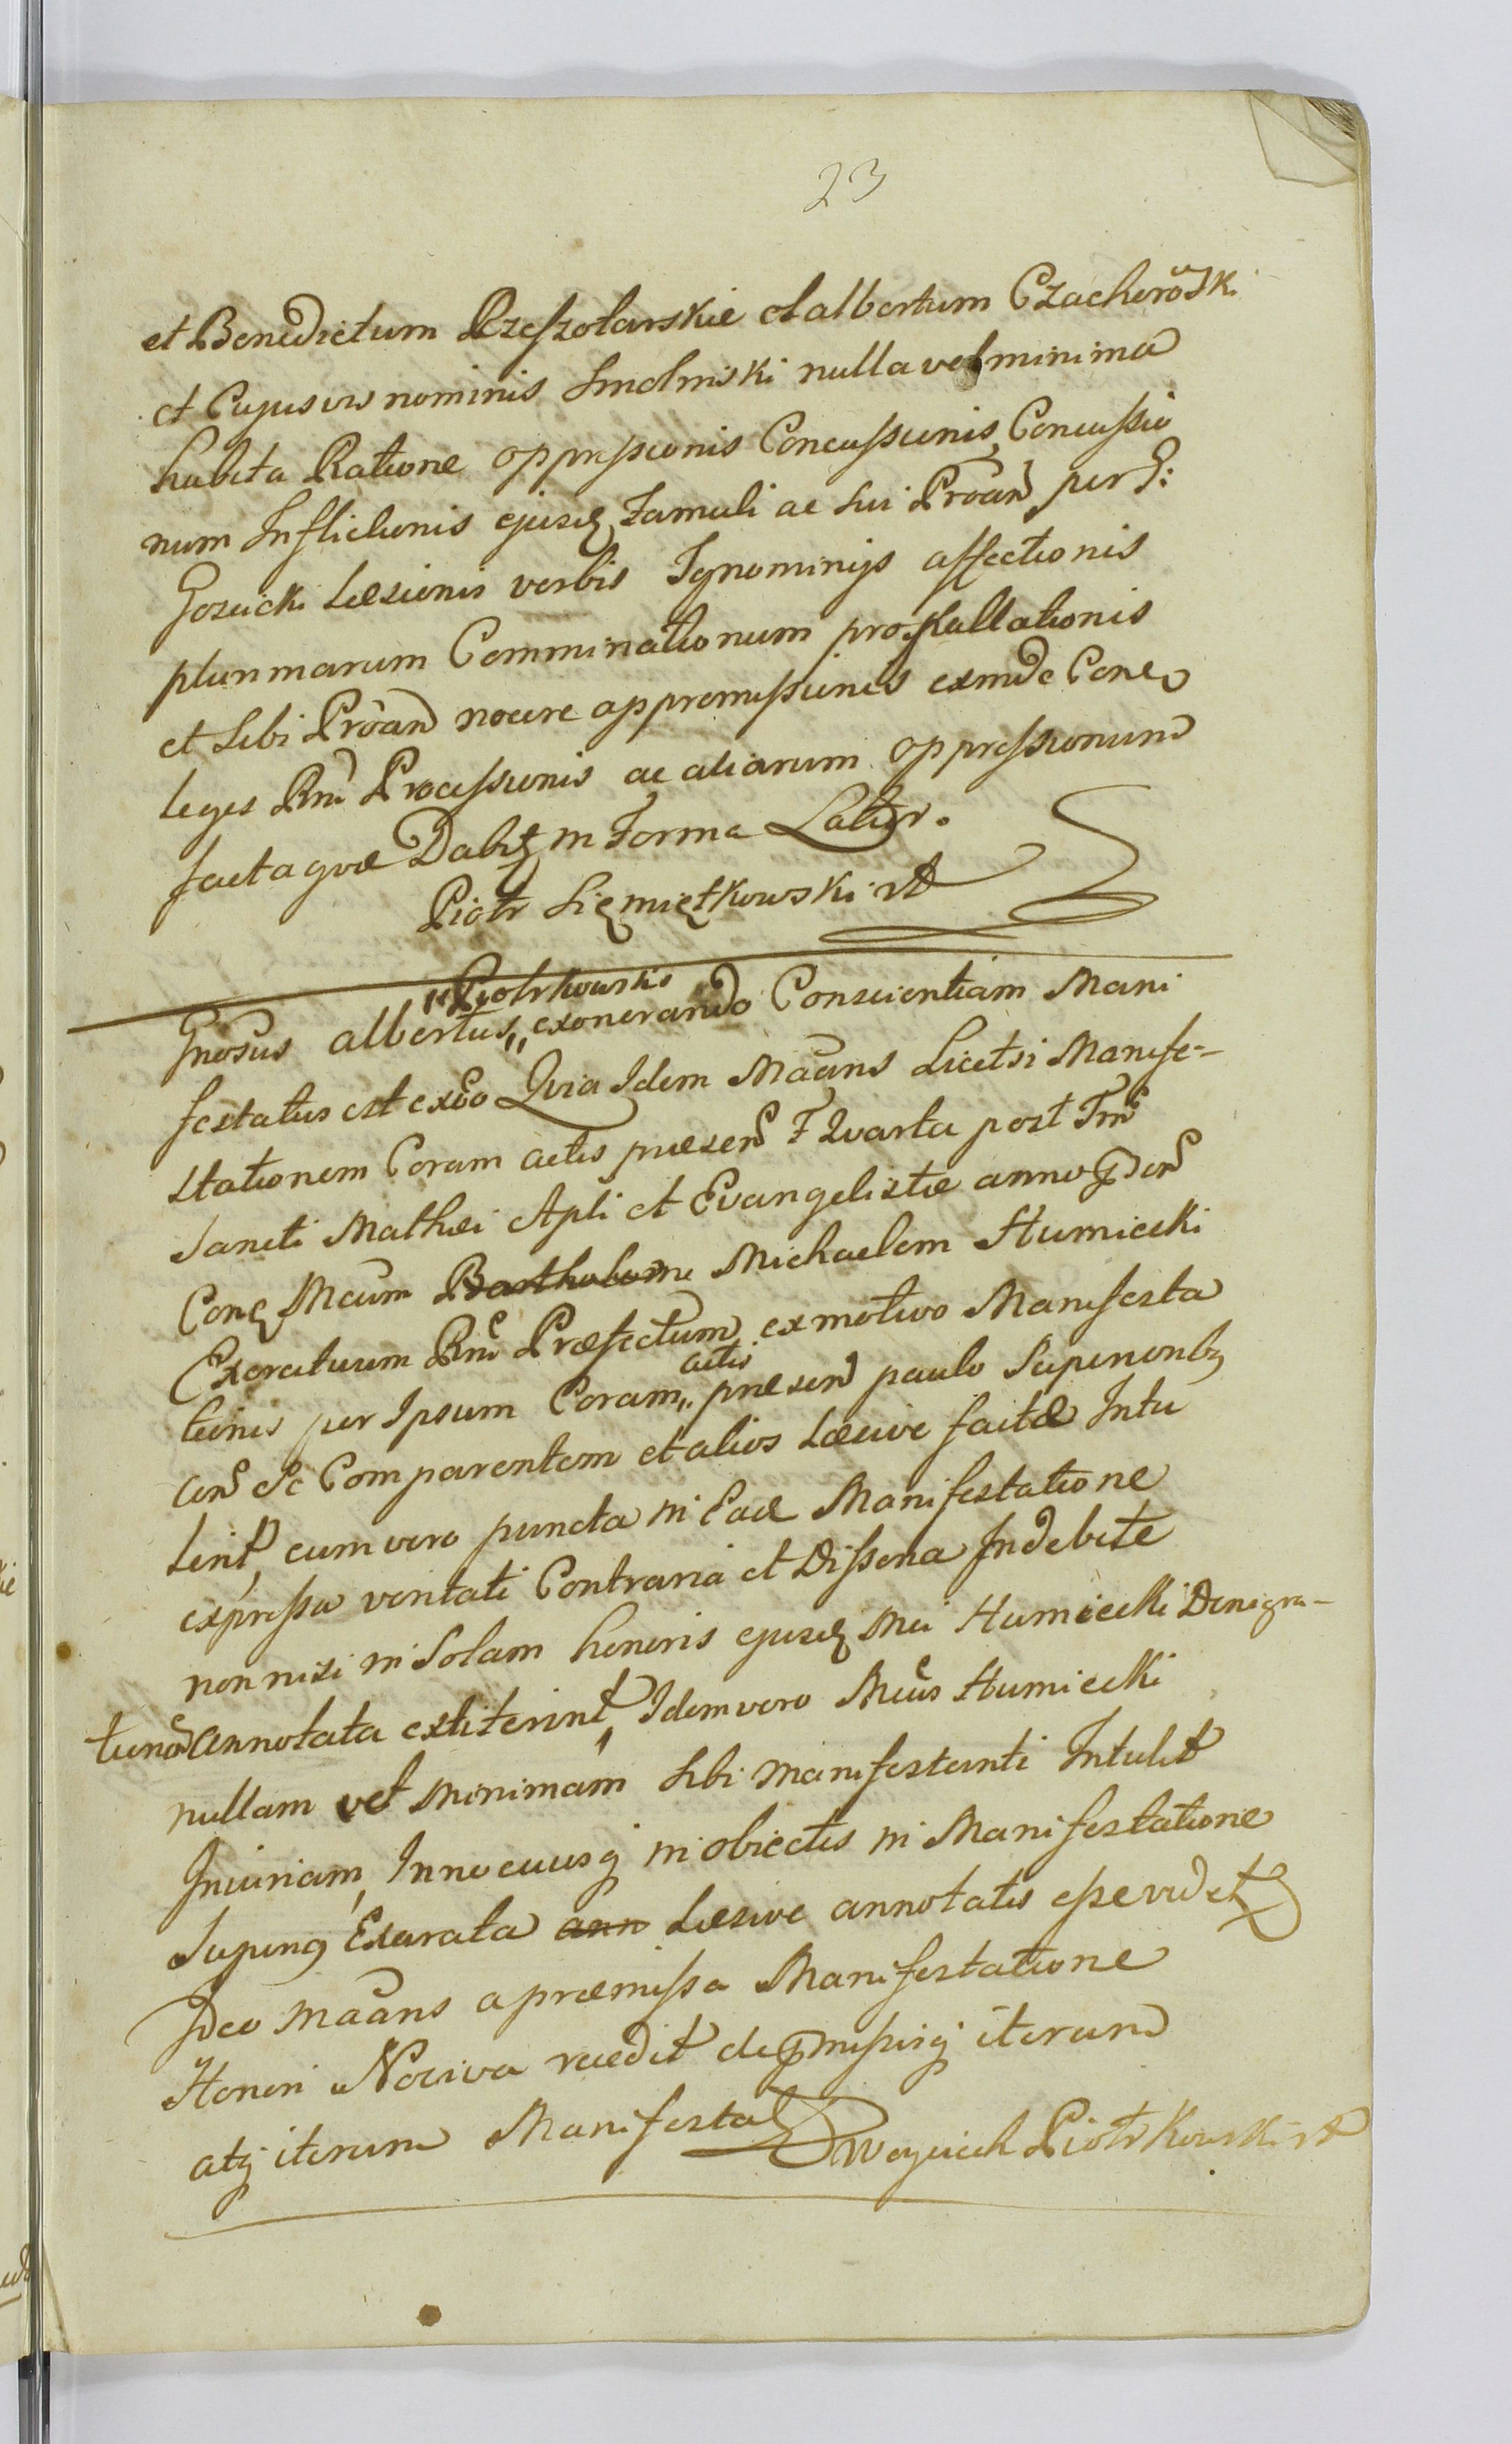 23
et Benedictum Rzeszotarskie Albertum Czachorõsk
et Cujusvis nominis Smolinski nulla vel minima
habita Ratione oppressionis Concussionis, Concussio
num Inflictionis ejusd Famuli ac sui Proan per G:
Gozicki Læsionis verbis Ignominijs affectionis
plurimarum Comminationum prostallationis
et Sibi Proan nocere appromissionis exinde Cone
leges Rni Processionis ac aliarum oppressionum
factaque Dabit in Forma Latior.
Piotr Siemiętkowski
Gnosus Albertus „Piotrkowski„ exonerando Conscientiam Mani
festatus est ex eo Quia Idem Maans Licet si Manife-
stationem Coram actis præsen F Quarta post Fm
Sancti Mathæi Apli et Evangelistæ anno
Con Mcum Bartholom Michaelem Humiecki
Exercituum Rni Præfectum ex motivo Manifesta
tionis per Ipsum Coram „actis præsen paulo Superioribus
con se Comparentem et alios Læsive factæ Intu
lerit, cum vero puncta in Ead Manifestatione
expressa veritati Contraria et Dissona Indebite
non nisi in Solam honoris ejusd Mci Humiecki Denigra-
tionem annotata extiterint, Idem vero Mcus Humiecki
nullam vel Minimam Sibi Manifestanti Intulit
Iniuriam, Innocuusq in obiectis in Manifestatione
Superius Exarata ann Læsive annotatis esse videt
Ideo Maans a præmissa Manifestatione
Honori Nociva recedit de præmissisq iterum
atq iterum Manifestat Woyciech Piotrkowski